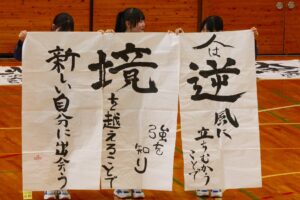 人は
逆風に
立ちむかう
ことで
強さ
を知り
境を越えることで
新しい自分に出会う